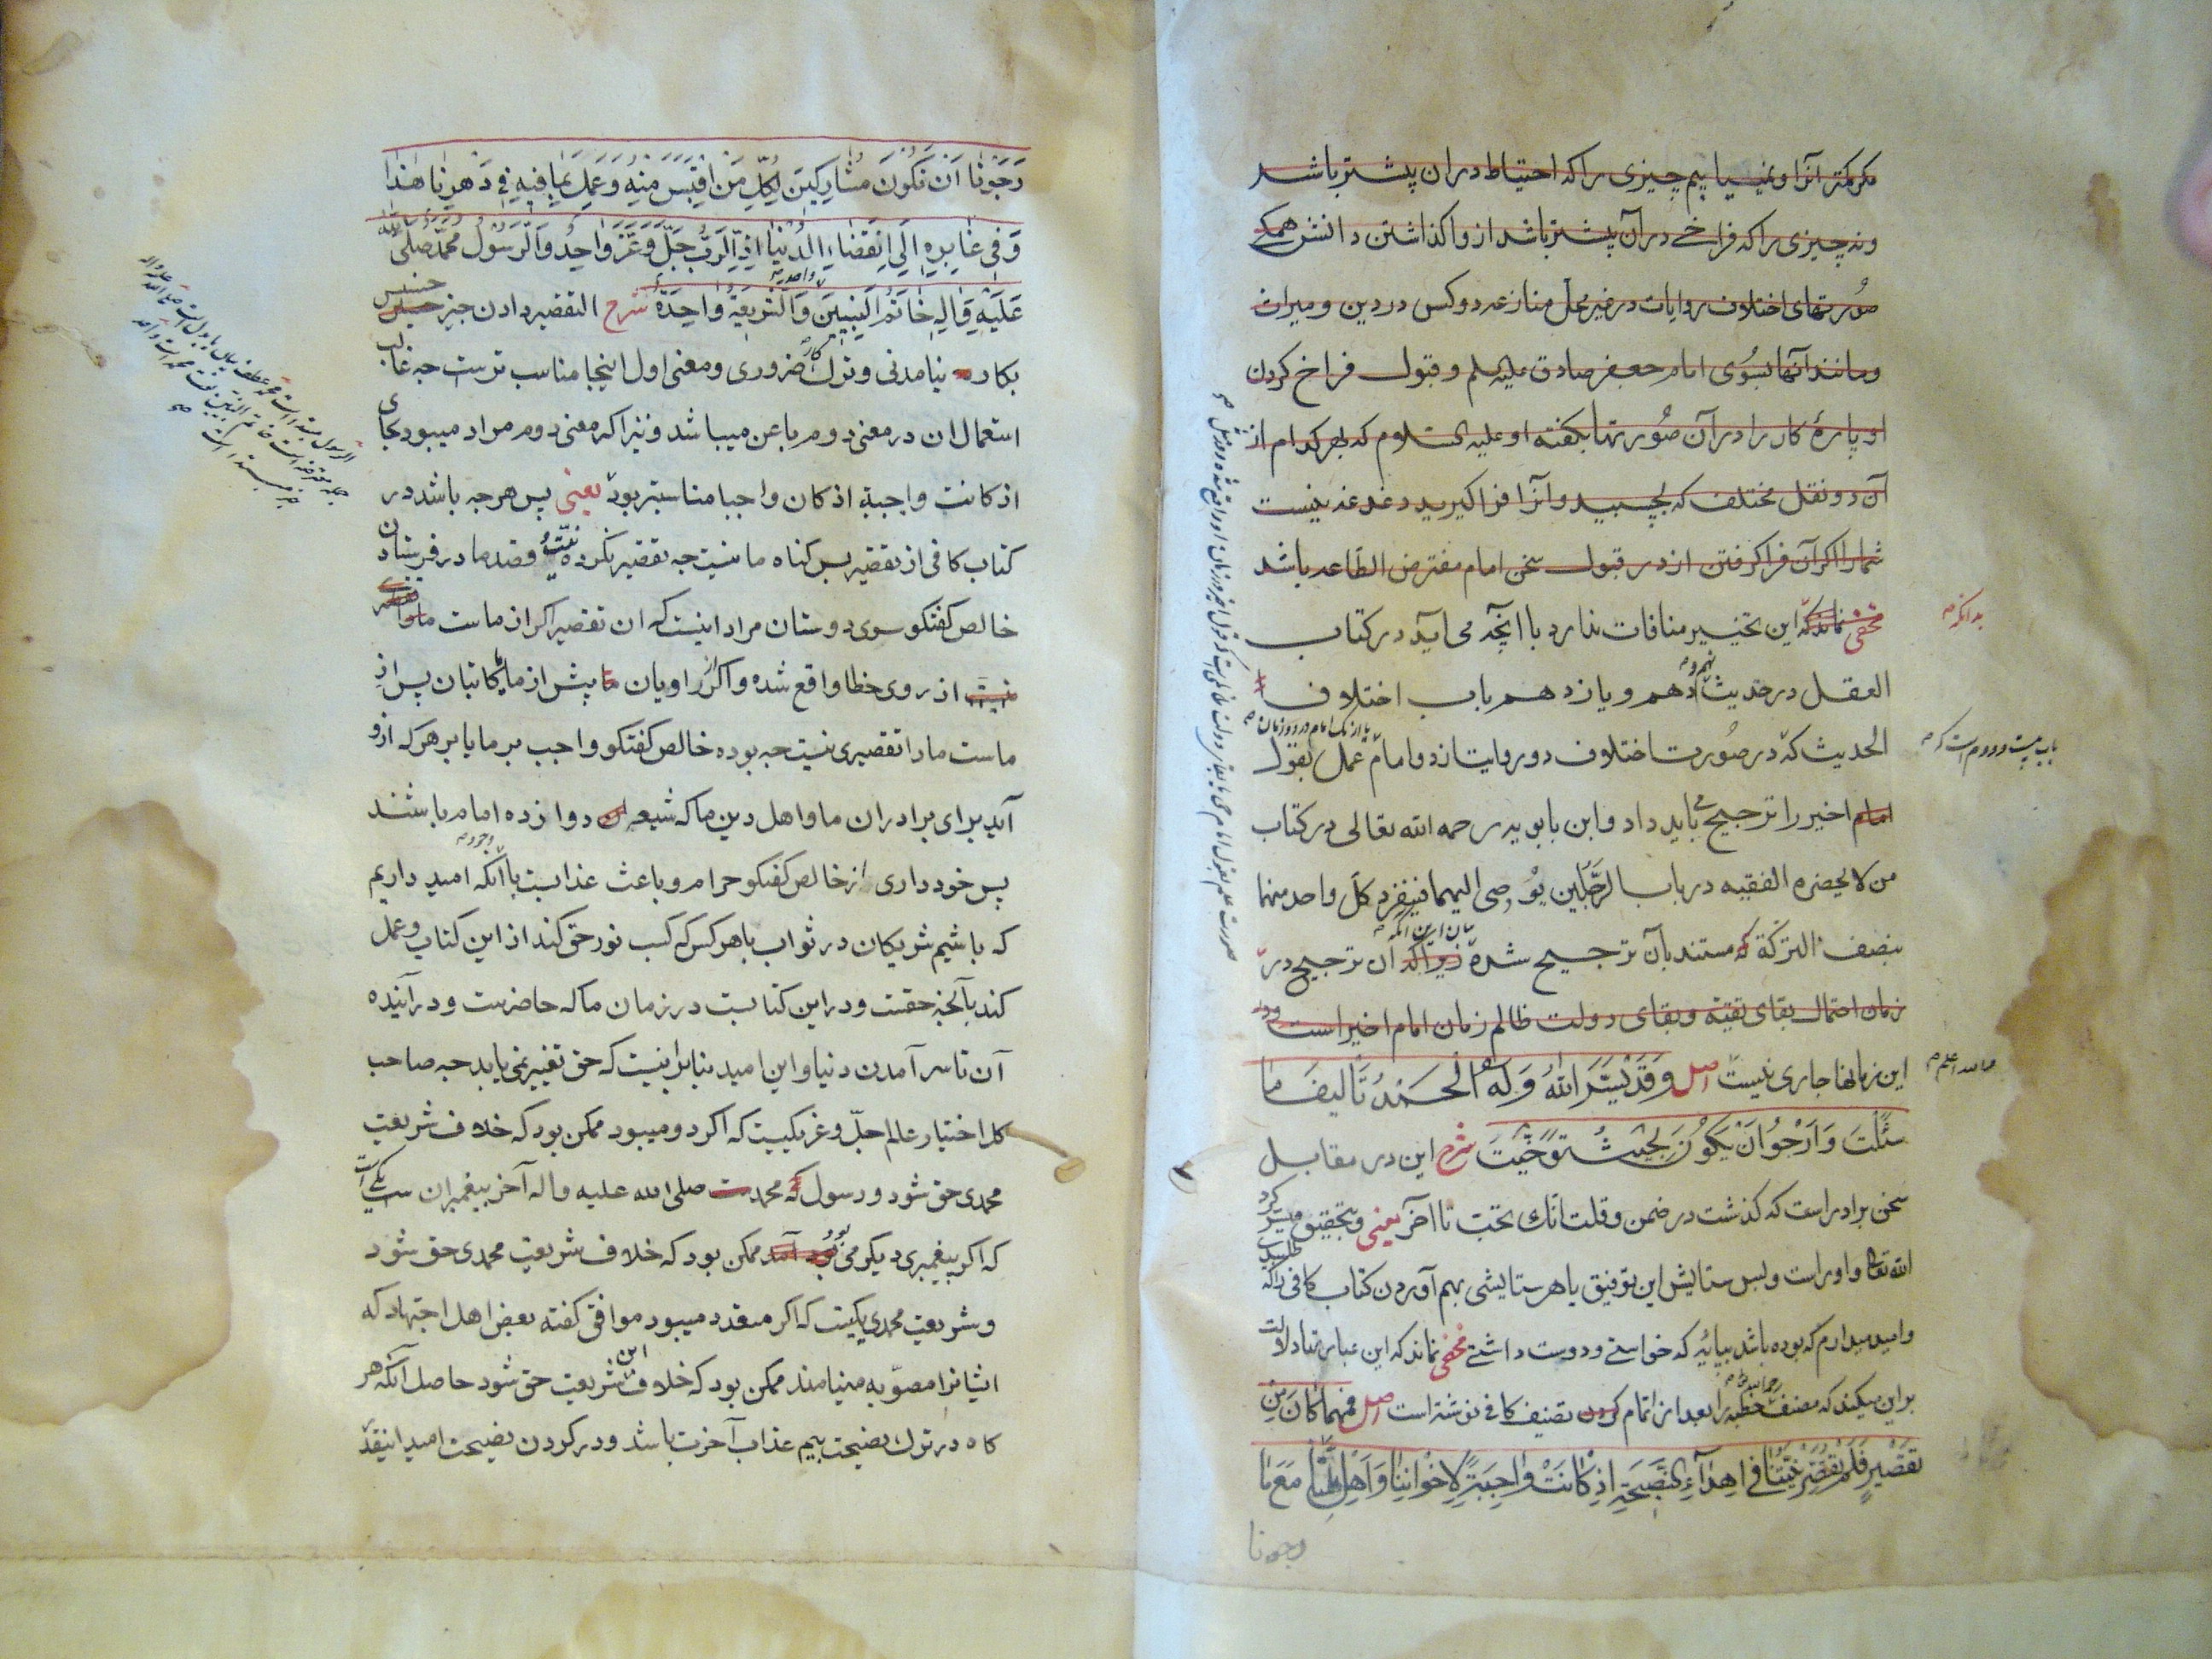 مگر کمتر آنرا و نمییابیم چیزی را که احتیاط در آن پیشتر باشد
و نه چیزی را که فراخی در آن پیشتر باشد از واگذاشتن دانش همگی
صُورتهای اختلاف روایات در غیر محلّ منازعه دو کس در دین و میراث
و مانند آنها بسُوی امام جعفر صادق علیه السلم و قبول فراخ کردن
او پارهٔ کار را در آن صُورتها بگفته او علیه السلام که بهر کدام از
آن دو نقل مختلف که بچسبید و آنرا فراگیرید دغدغه نیست
شما را اگر آن فراگرفتن از در قبول سخن امام مفترض الطّاعه باشد
مخفی نماند که این تخییر منافات ندارد با آنچه می آید در کتاب
بدانکه
العقل در حدیث نهم و دهم و یازدهم باب اختلاف
الحدیث که در صُورت اختلاف دو روایت از دو امام عمل بقول
باب بیست و دوم است که
امام اخیر را ترجیح می باید داد و ابن بابویه رحمه الله تعالی در کتاب
من لا یحضره الفقیه در باب الرّجلین یُوصی الیهما فینفرد کلّ واحد منهما
بنصف الترکة که مستند بآن ترجیح شده زیرا که آن ترجیح در
زمان احتمال بقای تقیّه و بقای دولت ظالم زمان امام اخیر است و در
این زمانها جاری نیست اصل وَقَدْ یَسَّرَ اللهُ وَلَهُ الْحَمْدُ تَأْلیفَ مٰا
سَئَلْتَ وَاَرْجُو اَنْ یَکُونَ بِحَیْثُ تَوَخَّیْتَ شرح این در مقابل
سخن برادر است که گذشت در ضمن و قلت انّک تحبّ تا آخر یعنی و بتحقیق میسّر کرد
الله تعالی و او راست و بس ستایش این توفیق یا هر ستایشی بهم آوردن کتاب کافی را که طلبیدی
و امید میدارم که بوده باشد بپایهٔ که خواستی و دوست داشتی مخفی نماند که این عبارتها دلالت
بر این میکند که مصنف رحمه الله تعالی خطبه را بعد از اتمام کردن تصنیف کافی نوشته است اصل فَمَهْمٰا کٰانَ مِنْ
تَقْصیرٍ فَلَمْ تُقَصِّرْ نِیَّتُنٰا فی اِهْدٰاءِ النَّصیحَةِ اِذْ کٰانَتْ وٰاجِبَةً لِاِخْوٰانِنٰا وَاَهْلِ مِلَّتِنٰا مَعَ مٰا
رجونا
رَجَوْنٰا اَنْ نَکُونَ مُشٰارِکینَ لِکُلِّ مَنِ اقْتَبَسَ مِنْهُ وَعَمِلَ بِمٰا فیهِ فی دَهْرِنٰا هٰذٰا
وَفی غٰابِرِهِ اِلَی انْقِضٰاءِ الدُّنْیٰا اِذِ الرَّبُّ جَلَّ وَعَزَّ وٰاحِدٌ وَالرَّسُولُ مُحَمَّدٌ صَلَّی اللهُ
عَلَیْهِ وَآلِهِ خٰاتَمُ النَّبِیّینَ وَالشَّریعَةُ وٰاحِدَةٌ شرح التقصیر دادن چیز خسیس
بکار نیامدنی و ترک کار ضروری و معنی اول اینجا مناسب ترست چه غالب
استعمال آن در معنی دوم با عن میباشد و نیز اگر معنی دوم مراد میبود بجای
اذ کانت واجبة اذ کان واجبا مناسبتر بود یعنی پس هر چه باشد در
کتاب کافی از تقصیر پس گناه ما نیست چه تقصیر نکرده نیّت و قصد ما در فرستادن
خالص گفتگو سوی دوستان مراد اینست که آن تقصیر اگر از ماست
از روی خطا واقع شده و اگر از راویان پیش از ما یا کاتبان پس از
ماست ما را تقصیری نیست چه بوده خالص گفتگو واجب بر ما یا بر هر که ازو
آید برای برادران ما و اهل دین ما که شیعه دوازده امام باشند
پس خود داری از خالص گفتگو حرام و باعث عذابست با وجود آنکه امید داریم
که باشیم شریکان در ثواب با هر کس که کسب نور حق کند از این کتاب و عمل
کند بآنچه حقست و در این کتابست در زمان ما که حاضرست و در آینده
آن تا سر آمدن دنیا و این امید بنابراینست که حق تغییر نمی یابد چه صاحب
کل اختیار عالم جلّ و عزّ یکیست که اگر دو میبود ممکن بود که خلاف شریعت
محمدی حق شود و رسول که محمدست صلی الله علیه و اله آخر پیغمبران است یکی است
که اگر پیغمبری دیگر می بود ممکن بود که خلاف شریعت محمدی حق شود
و شریعت محمدی یکیست که اگر متعدد میبود موافق گفته بعض اهل اجتهاد که
ایشانرا مصوّبه مینامند ممکن بود که خلاف این شریعت حق شود حاصل آنکه هر
گاه در ترک نصیحت بیم عذاب آخرت باشد و در کردن نصیحت امید اینقدر